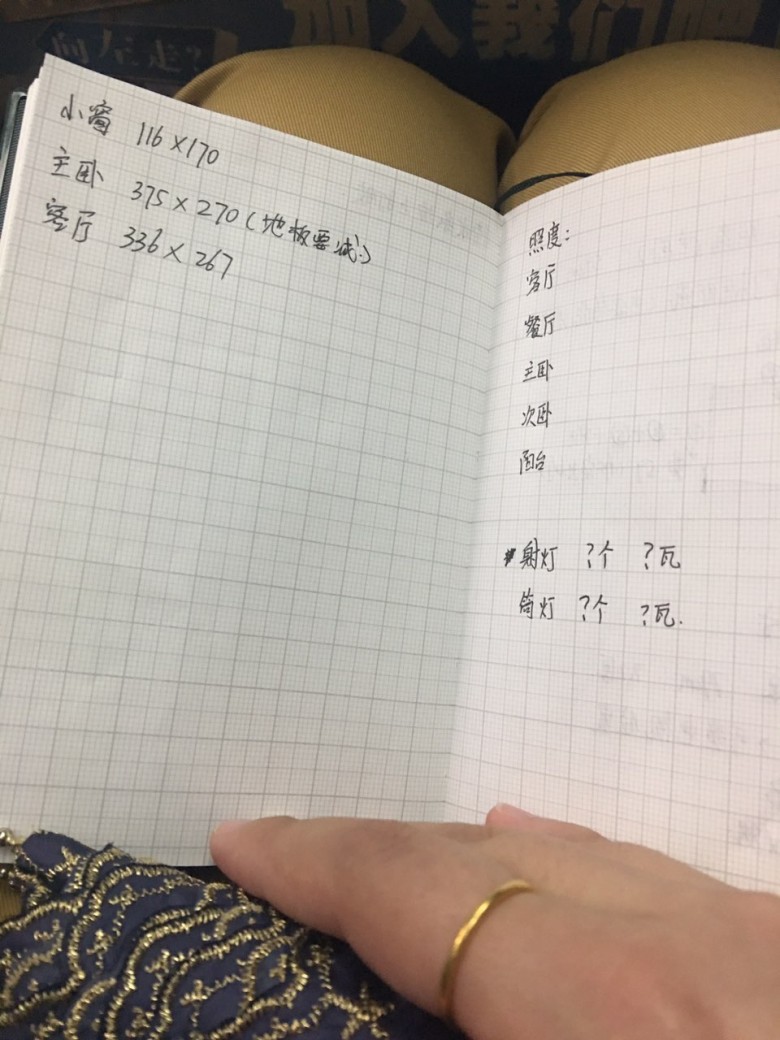 加入我们吧
向左走?
小窗 116×170
主卧 375×270(地板要减)
客厅 336×267
照度:
客厅
餐厅
主卧
次卧
阳台
射灯 ?个 ?瓦
筒灯 ?个 ?瓦.